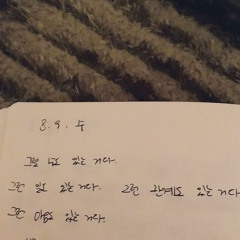 8. 9. 수
그럴 나도 있는 거다.
그런 일도 있는 거다. 그런 관계도 있는 거다
그런 마음도 있는 거다.